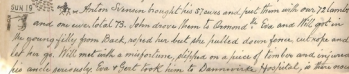 SUN 19 Anton Sivesen brought his 57 ewes and put them with our 72 lambs
and one ewe, total 73. John drove them to Ormond. The Eva and Will got in
the young filly from Back, roped her but she pulled down fence, cut rope and
let her go. Will met with a misfortune, stepped on a piece of timber and injured
his ankle seriously. Eva & Gert took him to Dannevirke Hospital, is there now